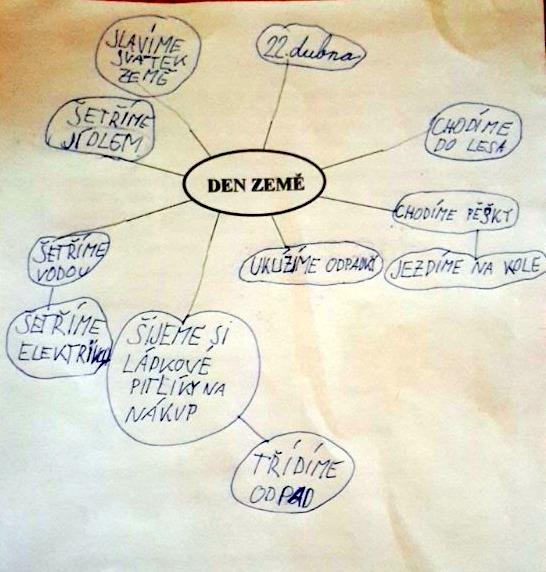 SLAVÍME
SVÁTEK
ZEMĚ
22. dubna
ŠETŘÍME
JÍDLEM
CHODÍME
DO LESA
DEN ZEMĚ
CHODÍME PĚŠKY
ŠETŘÍME
VODOU
UKLÍZÍME ODPADKY
JEZDÍME NA KOLE
ŠETŘÍME
ELEKTŘIKU
ŠIJEME SI
LÁPKOVÉ
PITLÍKY NA
NÁKUP
TŘÍDÍME
ODPAD